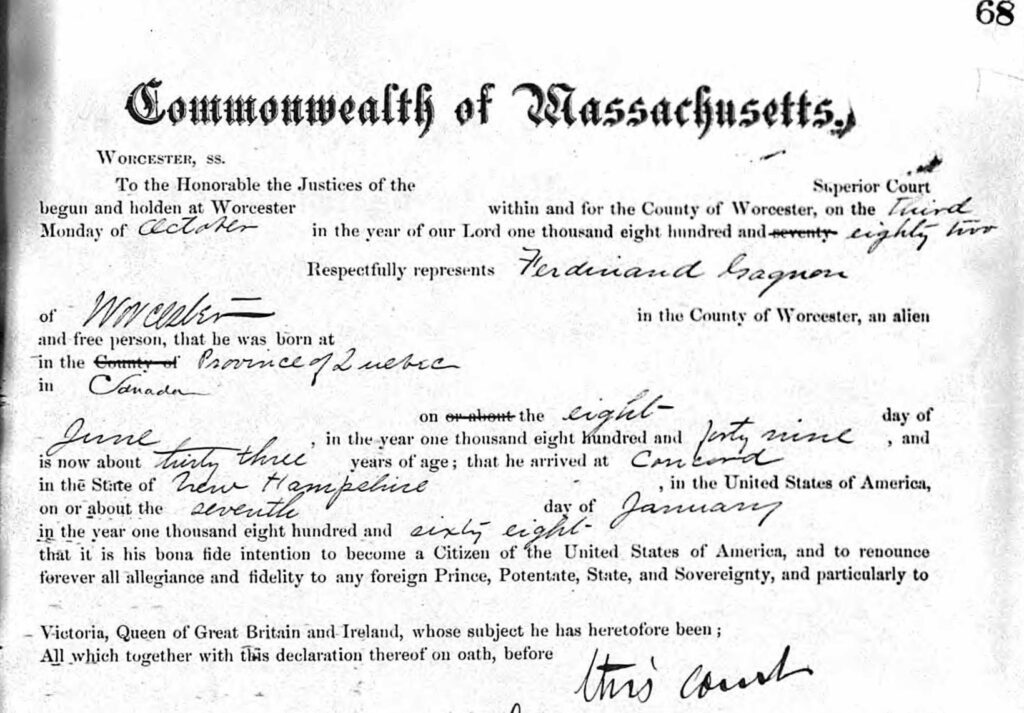 68
Commonwealth of Massachusetts.
WORCESTER, SS.
To the Honorable the Justices of the Superior Court
begun and holden at Worcester within and for the County of Worcester, on the third
Monday of October in the year of our Lord one thousand eight hundred and seventy eighty two
Respectfully represents Ferdinand Gagnon
of Worcester in the County of Worcester, an alien
and free person, that he was born at
in the County of Province of Quebec
in Canada
on or about the eight day of
June, in the year one thousand eight hundred and forty nine, and
is now about thirty three years of age; that he arrived at Concord
in the State of New Hampshire, in the United States of America,
on or about the seventh day of January
in the year one thousand eight hundred and sixty eight
that it is his bona fide intention to become a Citizen of the United States of America, and to renounce
forever all allegiance and fidelity to any foreign Prince, Potentate, State, and Sovereignty, and particularly to
Victoria, Queen of Great Britain and Ireland, whose subject he has heretofore been;
All which together with this declaration thereof on oath, before
this court